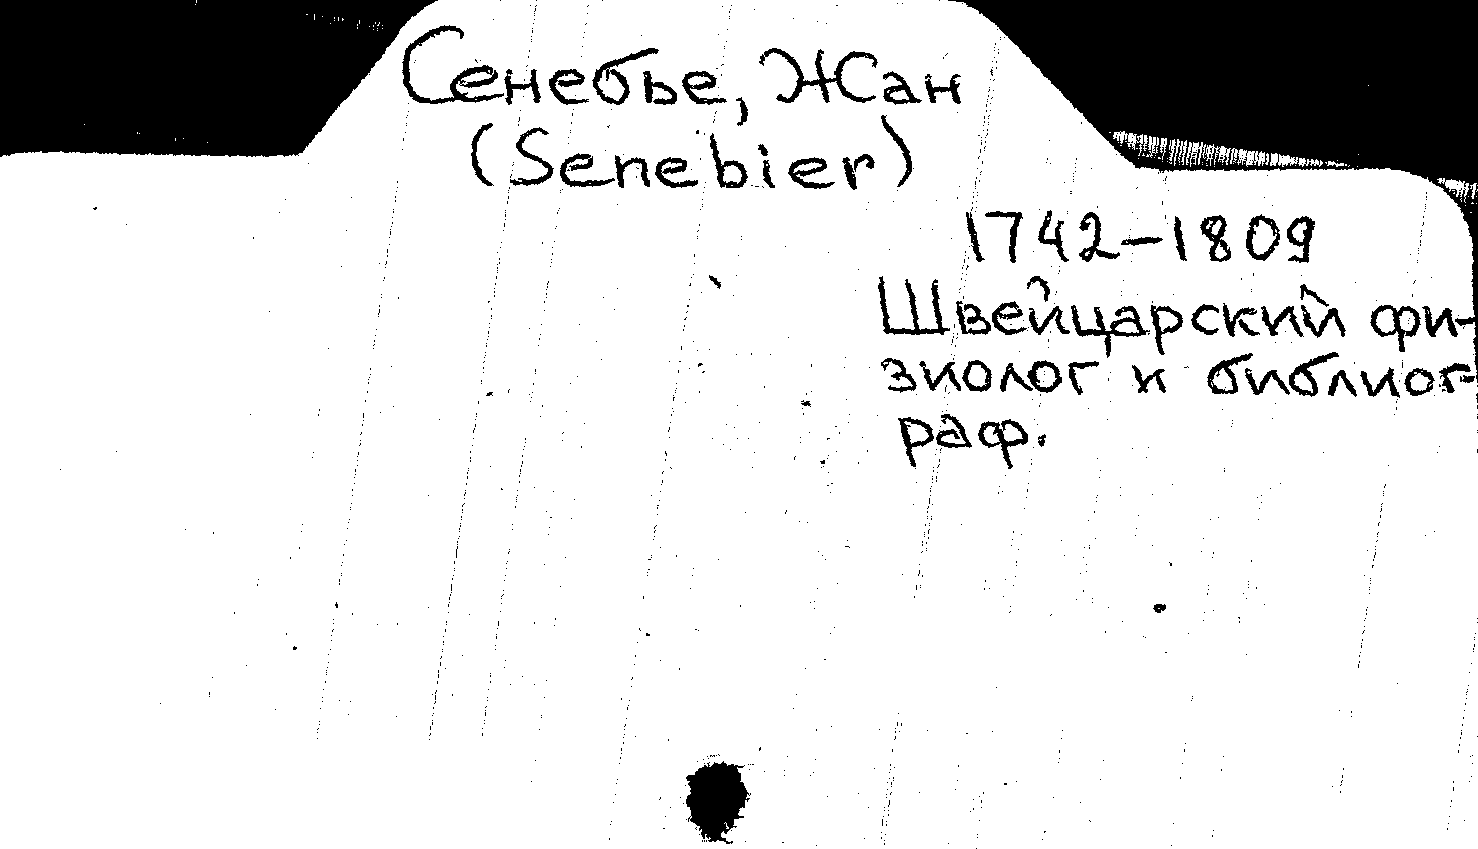 Сенебье, Жан
(Senebier)
1742-1809
Швейцарский фи-
зиолог и библиог-
раф.